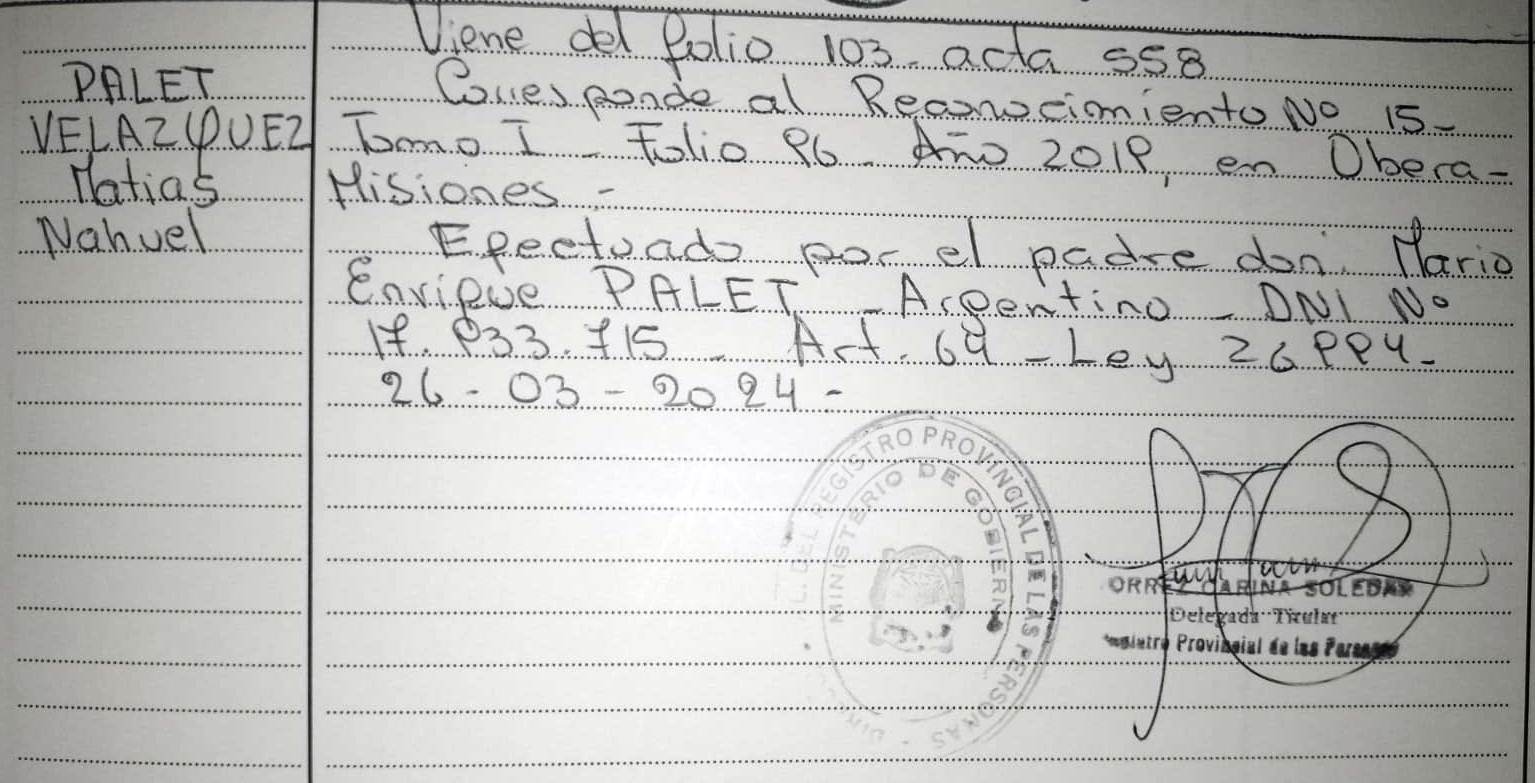 PALET
VELAZQUEZ
Matias
Nahuel
Viene del folio 103 - acta 558
Corresponde al Reconocimiento Nº 15 -
Tomo I - Folio 96 - Año 2019, en Obera -
Misiones -
Efectuado por el padre don: Mario
Enrique PALET - Argentino - DNI Nº
17.933.715 - Art. 64 - Ley 26994 -
26 - 03 - 2024 -
DEL REGISTRO PROVINCIAL DE LAS PERSONAS
MINISTERIO DE GOBIERNO
CARINA SOLEDAD
Delegada Titular
Provincial de las Personas